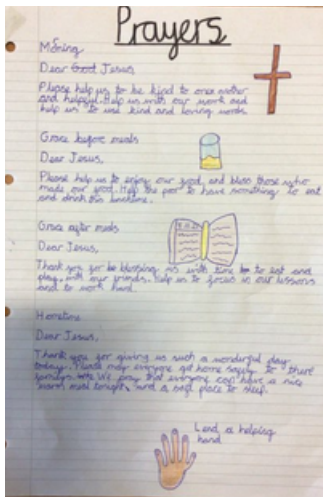 Prayers
Morning
Dear Good Jesus,
Please help us to be kind to one another
and helpful. Help us with our work and
help us to use kind and loving words.
Grace before meals
Dear Jesus,
Please help us to enjoy our food, and bless those who
made our food. Help the poor to have something to eat
and drink this lunchtime.
Grace after meals
Dear Jesus,
Thank you for be blessing us with time to eat and
play with our friends. Help us to focus in our lessons
and to work hard.
Hometime
Dear Jesus,
Thank you for giving us such a wonderful day
today. Please may everyone get home safely to there
familys. We pray that everyone can have a nice
warm meal tonight, and a safe place to sleep.
Lend a helping
hand